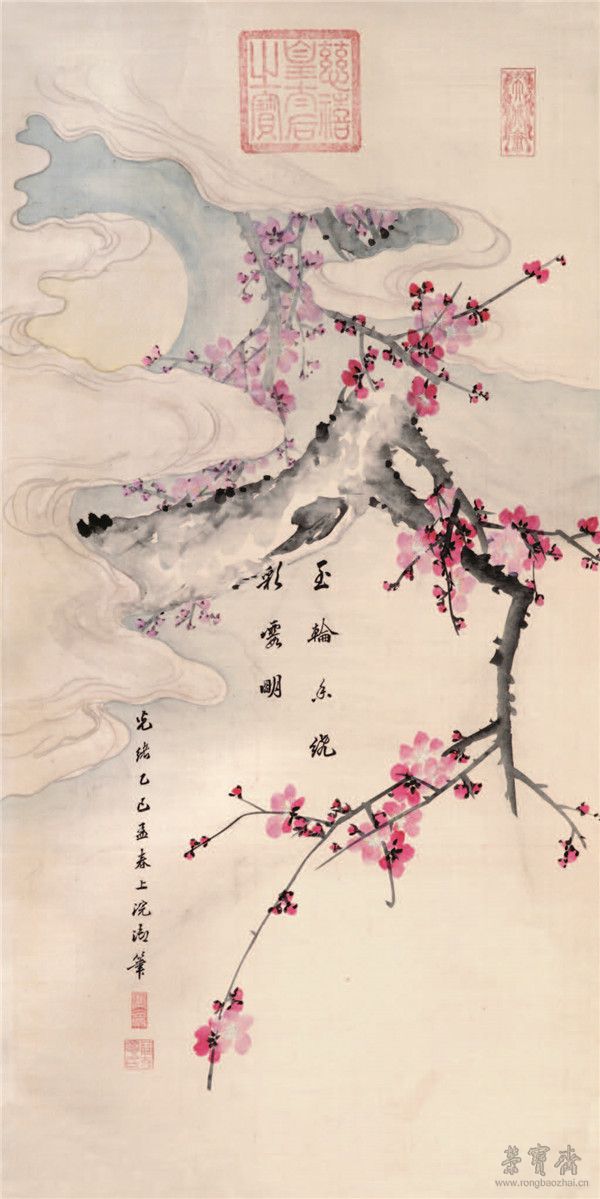 慈禧
皇太后
之寶
玉輪香繞
彩霞明
光緒乙巳孟春上浣御筆
榮寶齋
www.rongbaozhai.cn